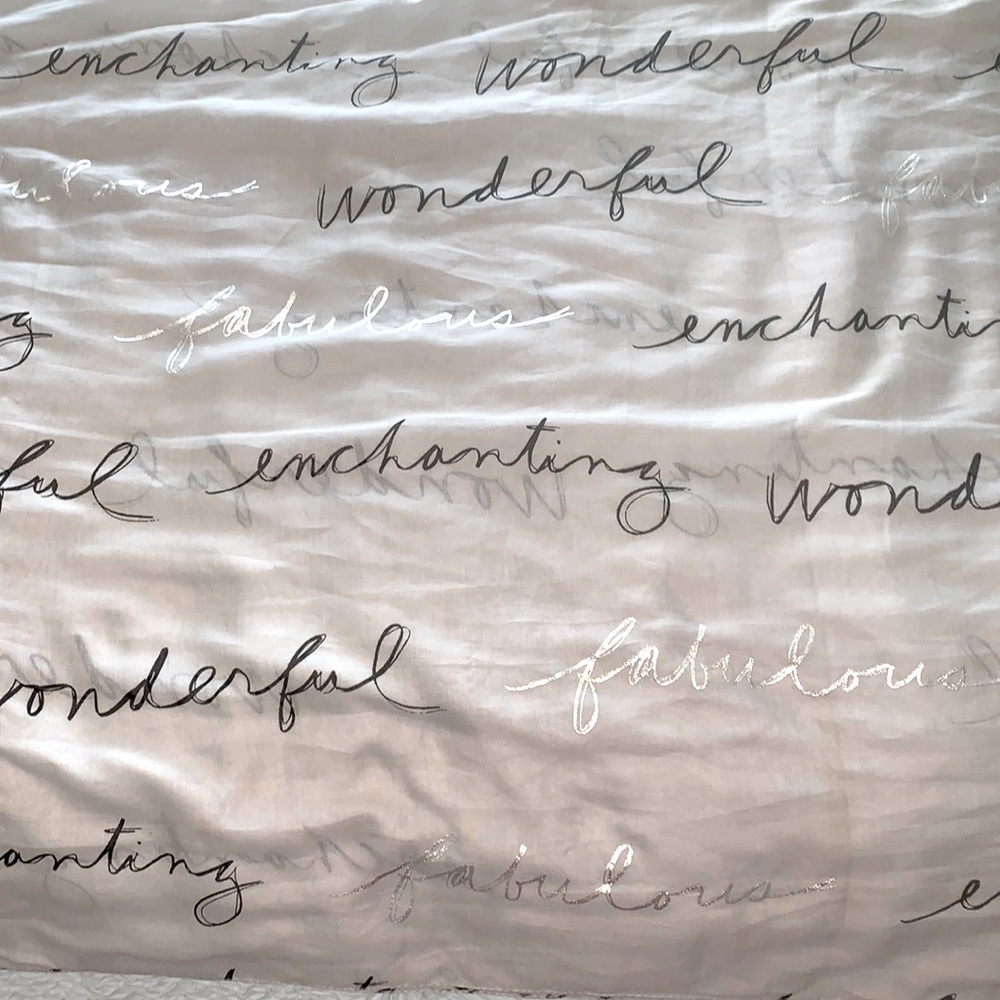 enchanting wonderful e
ulous wonderful fab
g fabulous enchanti
ful enchanting wond
wonderful fabulous
anting fabulous e